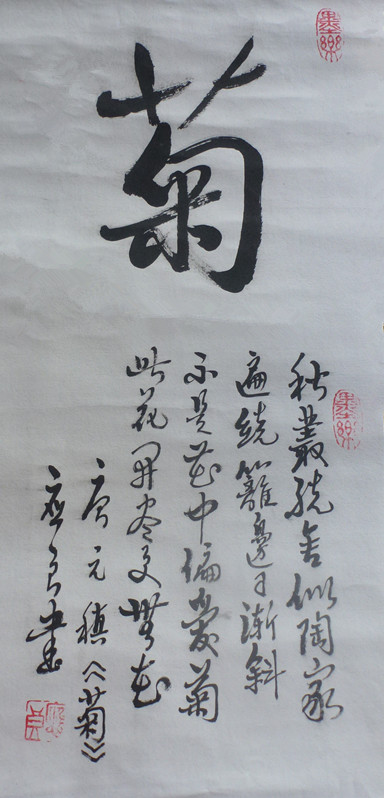 菊
秋叢繞舍似陶家
遍繞籬邊日漸斜
不是花中偏愛菊
此花開盡更無花
唐元稹《菊》
應良書
墨樂
墨樂